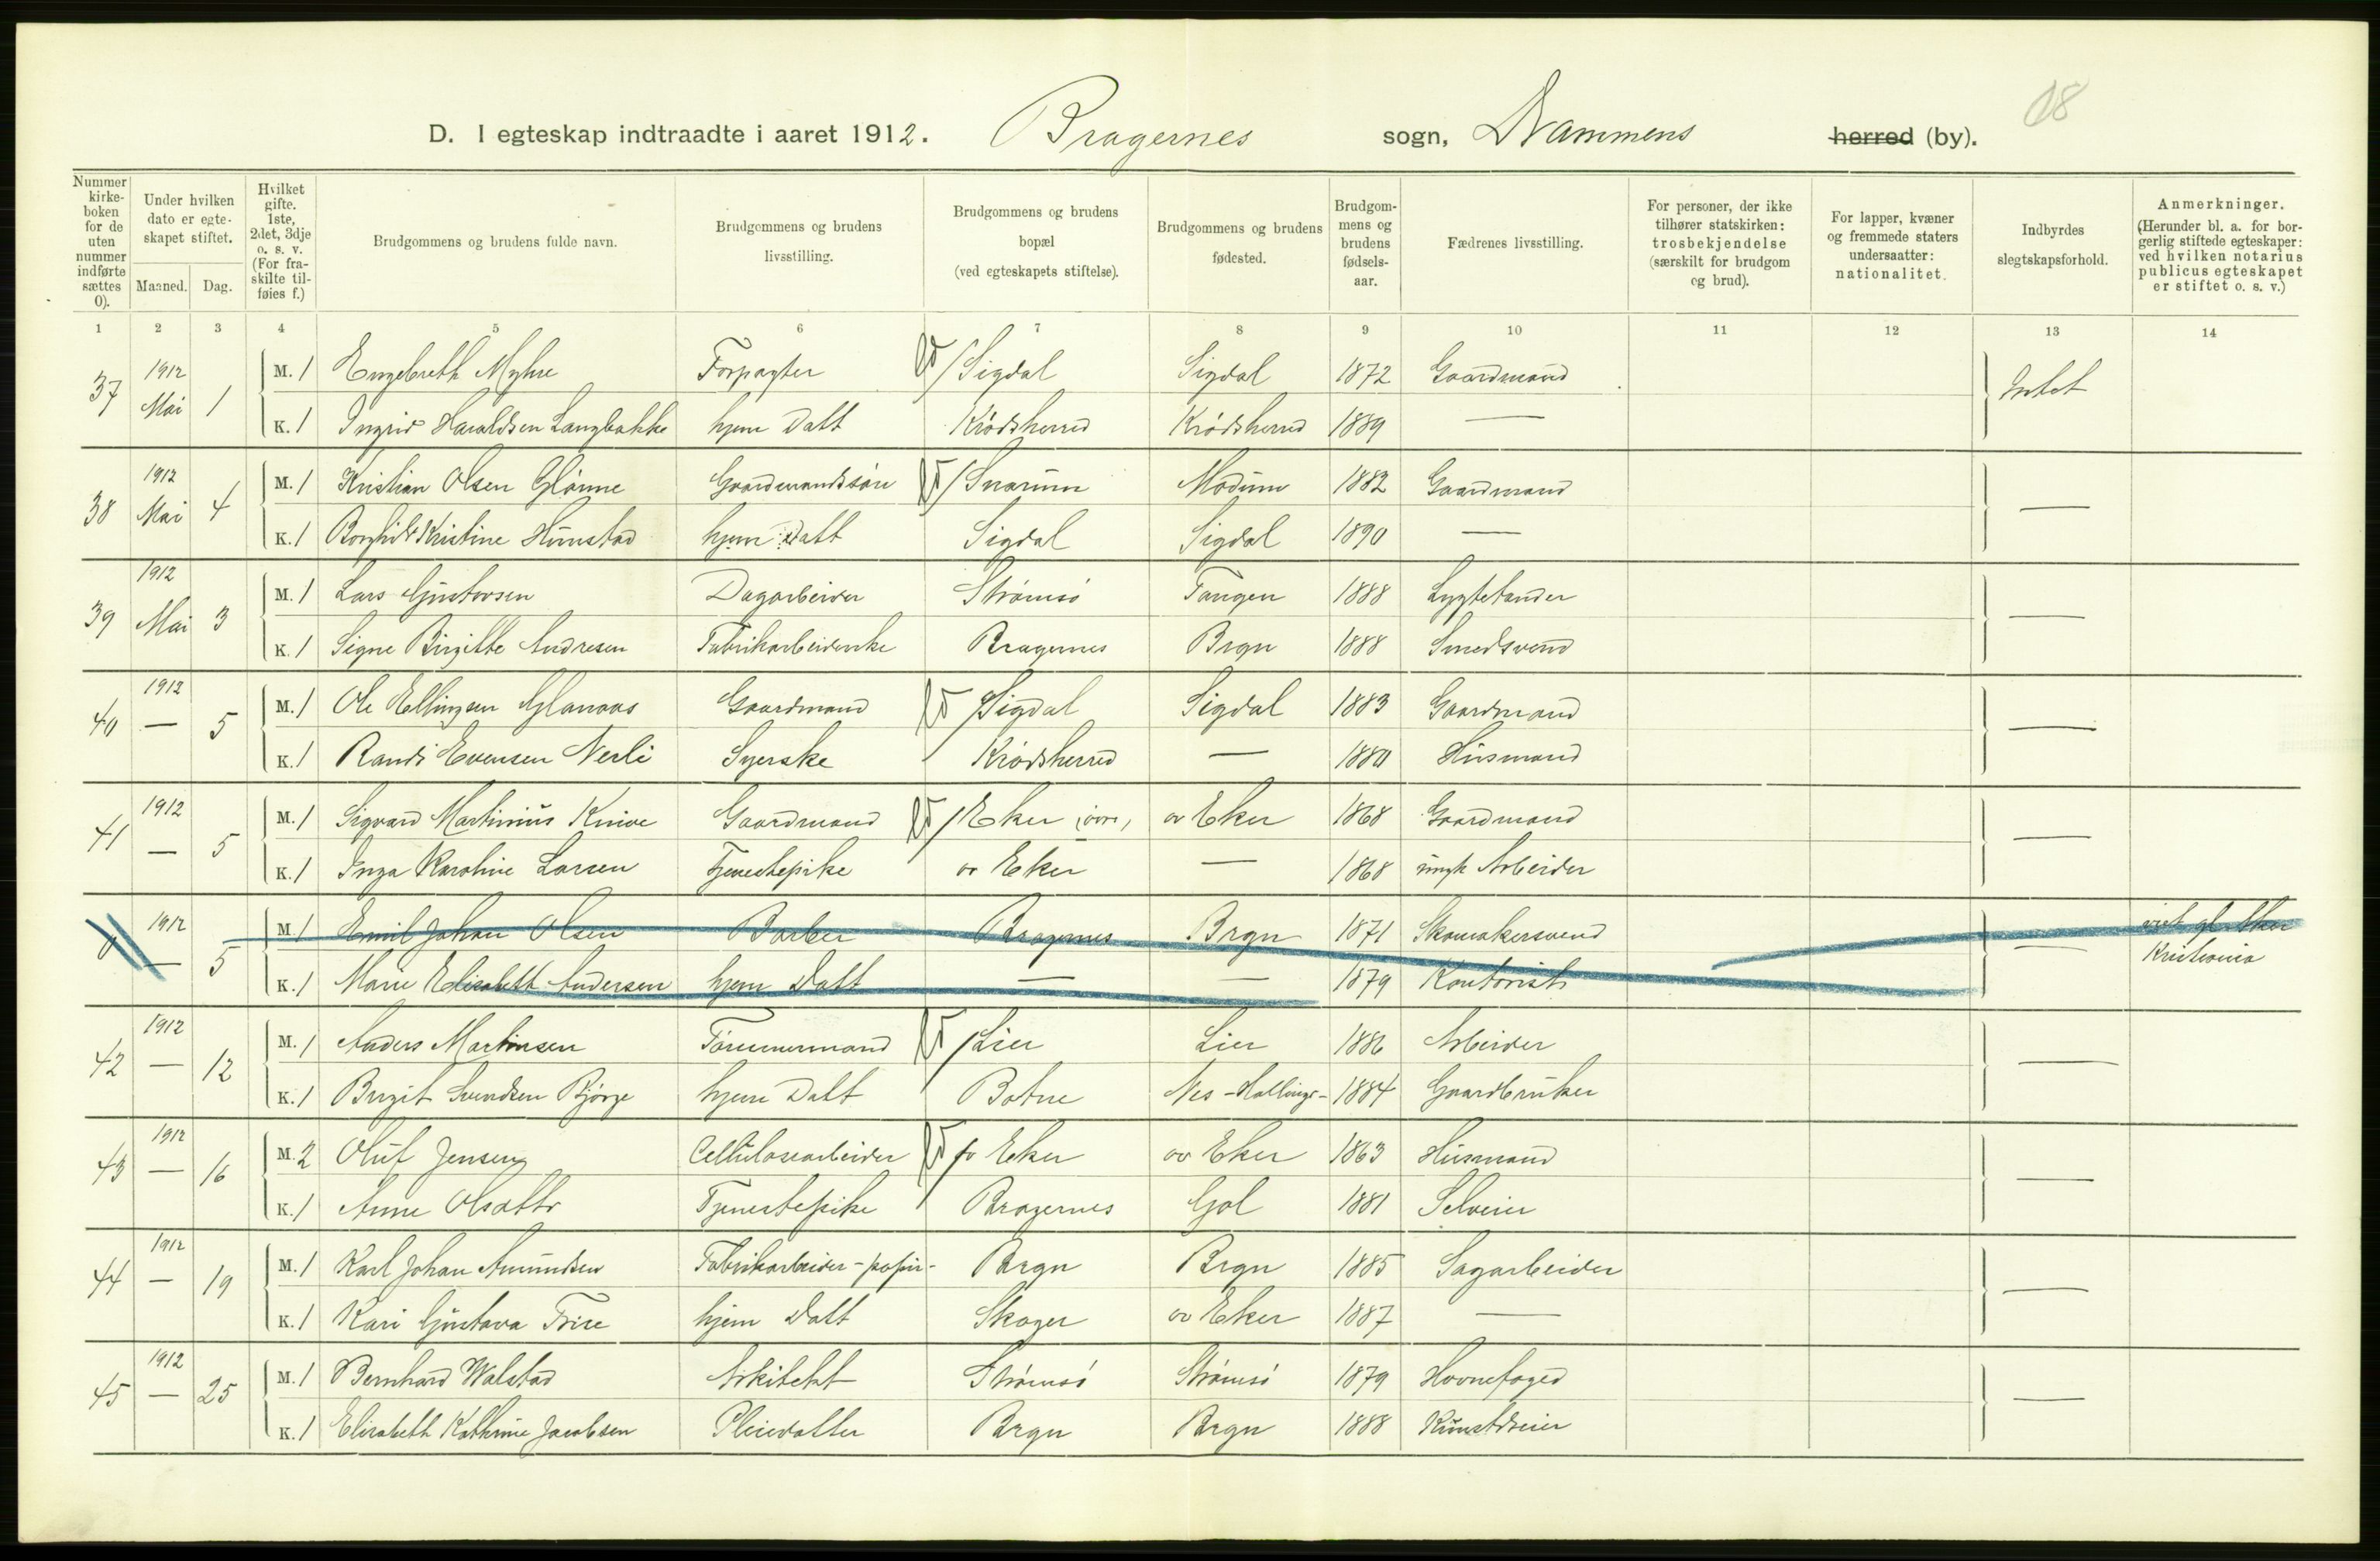 18
D. I egteskap indtraadte i aaret 1912. Bragernes sogn, Drammens herred (by).
Nummer kirkeboken for de uten nummer indførte sættes 0).
Under hvilken dato er egteskapet stiftet.
Maaned. Dag.
Hvilket gifte. 1ste, 2det, 3dje o. s. v. (For fraskilte tilføies f.)
Brudgommens og brudens fulde navn.
Brudgommens og brudens livsstilling.
Brudgommens og brudens bopæl (ved egteskapets stiftelse).
Brudgommens og brudens fødested.
Brudgommens og brudens fødselsaar.
Fædrenes livsstilling.
For personer, der ikke tilhører statskirken: trosbekjendelse (særskilt for brudgom og brud).
For lapper, kvæner og fremmede staters undersaatter: nationalitet.
Indbyrdes slegtskapsforhold.
Anmerkninger. (Herunder bl. a. for borgerlig stiftede egteskaper: ved hvilken notarius publicus egteskapet er stiftet o. s. v.)
1 2 3 4 5 6 7 8 9 10 11 12 13 14
37 1912 Mai 1 M. 1 Engebreth Myhre Forpagter Sigdal Sigdal 1872 Gaardmand Intet
K. 1 Ingrid Haraldsen Langbakke hjem Datt Krødsherred Krødsherred 1889 —
38 1912 Mai 4 M. 1 Kristian Olsen Glømme Gaardmandssøn Snarum Modum 1882 Gaardmand —
K. 1 Borghild Kristine Hunstad hjem Datt Sigdal Sigdal 1890 —
39 1912 Mai 3 M. 1 Lars Gustavsen Dagarbeider Strømsø Tangen 1888 Lygtetænder —
K. 1 Signe Birgitte Andresen Fabrikarbeiderske Bragernes Brgn 1888 Smedsvend
40 1912 — 5 M. 1 Ole Ellingsen Gaardmand Sigdal Sigdal 1883 Gaardmand —
K. 1 Randi Evensen Nerli Syerske Krødsherred — 1880 Husmand
41 1912 — 5 M. 1 Sigvard Martinius Knive Gaardmand Eker (øvre) øv Eker 1868 Gaardmand —
K. 1 Inga Karoline Larsen Tjenestepike øv Eker — 1868 Arbeider
0 1912 — 5 M. 1 Emil Johan Olsen Barber Bragernes Brgn 1871 Skomakersvend — viet gl Aker
K. 1 Marie Elisabeth Andersen hjem Datt — — 1879 Kontorist Kristiania
42 1912 — 12 M. 1 Anders Martinsen Tømmermand Lier Lier 1886 Arbeider —
K. 1 Birgit Svendsen Bjørge hjem Datt Botne Nes - Hallingd - 1884 Gaardbruker
43 1912 — 16 M. 2 Oluf Jensen Cellulosearbeider øv Eker øv Eker 1863 Husmand —
K. 1 Anne Olsdttr Tjenestepike Bragernes Gol 1881 Selveier
44 1912 — 19 M. 1 Karl Johan Amundsen Fabrikarbeider - papir - Brgn Brgn 1885 Sagarbeider —
K. 1 Kari Gustava Frise hjem Datt Skoger øv Eker 1887 —
45 1912 — 25 M. 1 Bernhard Walstad Arkitekt Strømsø Strømsø 1879 Havnefoged —
K. 1 Elisabeth Kathrine Jacobsen Pleiedatter Brgn Brgn 1888 Kunstdreier